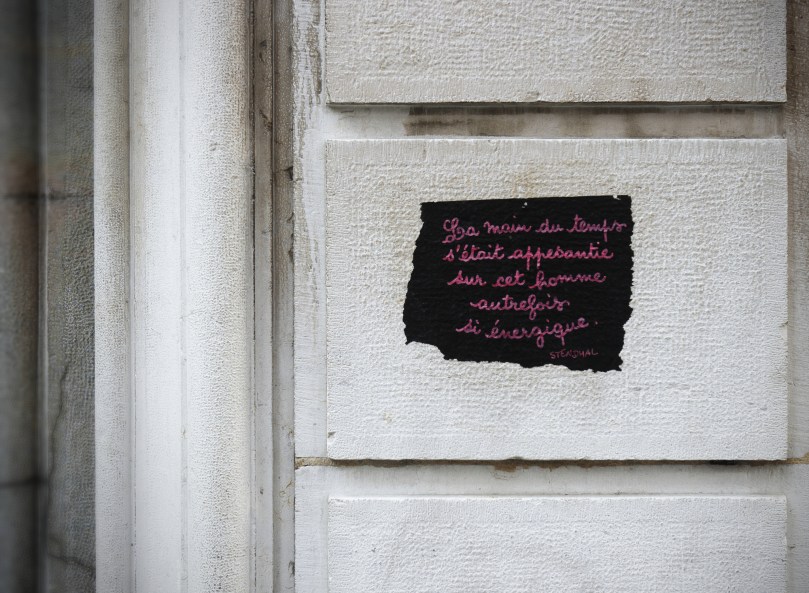 La main du temps
s'était appesantie
sur cet homme
autrefois
si énergique.
STENDHAL